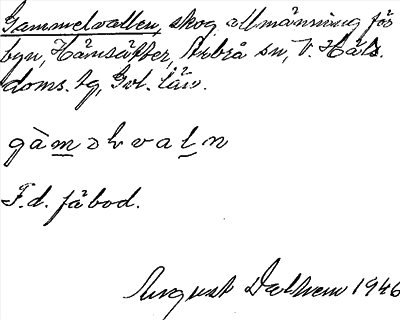 Gammelvallen, skog allmänning för
byn, Hämsätter, Arbrå sn, V. Häls.
doms. tg, Gvl. län.
gàmǝlvaln
F.d. fäbod.
August Dalhem 1946